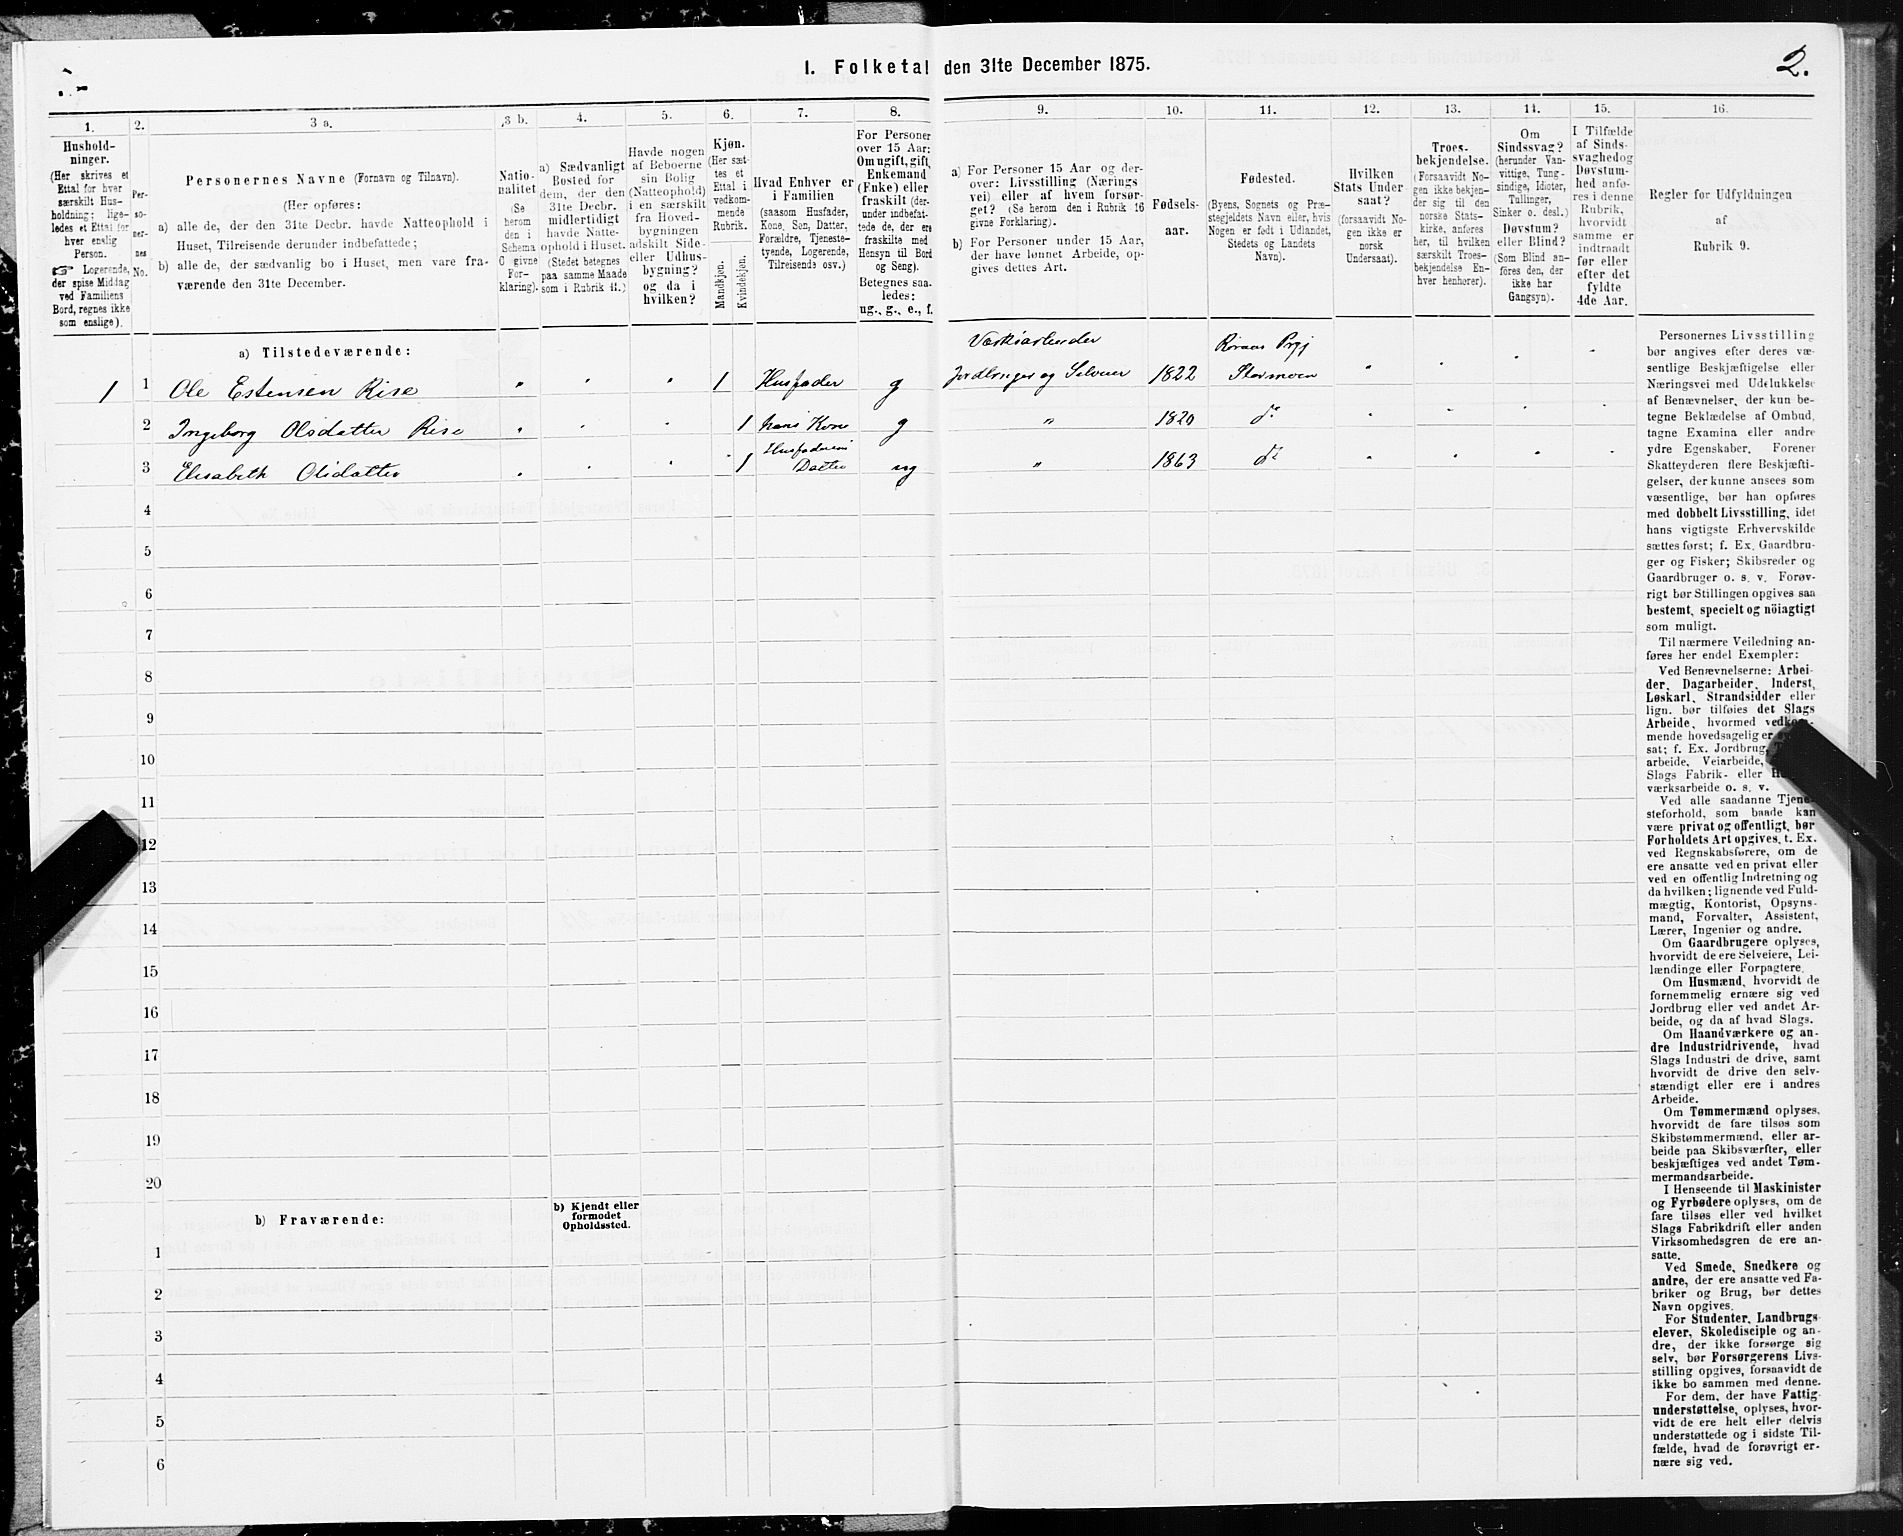 I. Folketal den 31te December 1875.
2.
1.
2.
3 a.
3 b.
4.
5.
6.
7.
8.
9.
10.
11.
12.
13.
14.
15.
16.
Hushold-
ninger.
(Her skrives et
Ettal for hver
særskilt Hus-
holdning; lige-
ledes et Ettal for
hver enslig
Person.
☞ Logerende,
der spise Middag
ved Familiens
Bord, regnes ikke
som enslige).
Per-
so-
ner-
nes
No.
Personernes Navne (Fornavn og Tilnavn).
(Her opføres:
a) alle de, der den 31te Decbr. havde Natteophold i
Huset, Tilreisende derunder indbefattede;
b) alle de, der sædvanlig bo i Huset, men vare fra-
værende den 31te December.
Natio-
nalitet
(Se
herom
den i
Schema
C givne
For-
klaring).
a) Sædvanligt
Bosted for
dem, der den
31te Decbr.
midlertidigt
havde Natte-
ophold i Huset.
(Stedet betegnes
paa samme Maade
som i Rubrik 11.)
Havde nogen
af Beboerne
sin Bolig
(Natteophold)
i en særskilt
fra Hoved-
bygningen
adskilt Side-
eller Udhus-
bygning?
og da i
hvilken?
Kjøn.
(Her sæt-
tes et
Ettal i
vedkom-
mende
Rubrik.
Mandkjøn.
Kvindekjøn.
Hvad Enhver er
i Familien
(saasom Husfader,
Kone, Søn, Datter,
Forældre, Tjeneste-
tyende, Logerende,
Tilreisende osv.)
For Personer
over 15 Aar:
Om ugift, gift,
Enkemand
(Enke) eller
fraskilt (der-
under indbefat-
tede de, der ere
fraskilte med
Hensyn til Bord
og Seng).
Betegnes saa-
ledes:
ug., g., e., f.
a) For Personer 15 Aar og der-
over: Livsstilling (Nærings
vei) eller af hvem forsør-
get? (Se herom den i Rubrik 16
givne Forklaring).
b) For Personer under 15 Aar,
der have lønnet Arbeide, op-
gives dettes Art.
Fødsels-
aar.
Fødested.
(Byens, Sognets og Præ-
stegjeldets Navn eller, hvis
Nogen er født i Udlandet,
Stedets og Landets
Navn).
Hvilken
Stats Under
saat?
(forsaavidt No-
gen ikke er
norsk
Undersaat).
Troes-
bekjendelse.
(Forsaavidt No-
gen ikke bekjen-
der sig til den
norske Stats-
kirke, anføres
her, til hvilken
særskilt Troes-
bekjendelse En-
hver henhører).
Om
Sindssvag?
(herunder Van-
vittige, Tung-
sindige, Idioter,
Tullinger,
Sinker o. desl.)
Døvstum?
eller Blind?
(Som Blind an-
føres den, der
ikke har
Gangsyn).
I Tilfælde
af Sinds-
svaghed og
Døvstum-
hed anfø-
res i denne
Rubrik,
hvorvidt
samme er
indtraadt
før eller
efter det
fyldte
4de Aar.
Regler for Udfyldningen
af
Rubrik 9.
a) Tilstedeværende:
Røraas Prgj
1 1 Ole Estensen Rise " " " 1 Husfader g Jordbruger og Selveier 1822 " " " "
2 Ingeborg Olsdatter Rise " " " 1 hans Kone g " do " " " "
3 Elisabeth Olsdatter " " " " 1 Datter ug " 1863 do " " " "
4
5
6
7
8
9
10
11
12
13
14
15
16
17
18
19
20
b) Fraværende:
b) Kjendt eller
formodet
Opholdssted.
1
2
3
4
5
6
Personernes Livsstilling
bør angives efter deres væ-
sentlige Beskjæftigelse eller
Næringsvei med Udelukkelse
af Benævnelser, der kun be-
tegne Beklædelse af Ombud,
tagne Examina eller andre
ydre Egenskaber. Forener
Skatteyderen flere Beskjæfti-
gelser, der kunne ansees som
væsentlige, bør han opføres
med dobbelt Livsstilling, idet
hans vigtigste Erhvervskilde
sættes først; f. Ex. Gaardbru-
ger og Fisker; Skibsreder og
Gaardbruger o. s. v. Forøv-
rigt bør Stillingen opgives saa
bestemt, specielt og nöiagtigt
som muligt.
Til nærmere Veiledning an-
føres her endel Exempler:
Ved Benævnelserne: Arbei-
der, Dagarbeider, Inderst,
Løskarl, Strandsidder eller
lign. bør tilføies det Slags
Arbeide, hvormed
mende hovedsagelig er
sat; f. Ex. Jordbrug,
arbeide, Veiarbeide,
Slags Fabrik- eller
værksarbeide o. s. v.
Ved alle saadanne Tjene-
steforhold, som baade kan
være privat og offentligt, bør
Forholdets Art opgives, t. Ex.
ved Regnskabsførere, om de
ere ansatte ved en privat eller
ved en offentlig Indretning og
da hvilken; lignende ved Fuld-
mægtig, Kontorist, Opsyns-
mand, Forvalter, Assistent,
Lærer, Ingeniør og andre.
Om Gaardbrugere oplyses,
hvorvidt de ere Selveiere, Lei-
lændinge eller Forpagtere.
Om Husmænd, hvorvidt de
fornemmelig ernære sig ved
Jordbrug eller ved andet Ar-
beide, og da af hvad Slags.
Om Haandværkere og an-
dre Industridrivende, hvad
Slags Industri de drive, samt
hvorvidt de drive den selv-
stændigt eller ere i andres
Arbeide.
Om Tømmermænd oplyses,
hvorvidt de fare tilsøs som
Skibstømmermænd, eller ar-
beide paa Skibsværfter, eller
beskjæftiges ved andet Tøm-
mermandsarbeide.
I Henseende til Maskinister
og Fyrbødere oplyses, om de
fare tilsøs eller ved hvilket
Slags Fabrikdrift eller anden
Virksomhedsgren de ere an-
satte.
Ved Smede, Snedkere og
andre, der ere ansatte ved Fa-
briker og Brug, bør dettes
Navn opgives.
For Studenter, Landbrugs-
elever, Skoledisciple og an-
dre, der ikke forsørge sig
selv, bør Forsørgerens Livs-
stilling opgives, forsaavidt de
ikke bo sammen med denne.
For dem, der have Fattig-
understøttelse, oplyses, hvor-
vidt de ere helt eller delvis
understøttede og i sidste Til-
fælde, hvad de forøvrigt er-
nære sig ved.